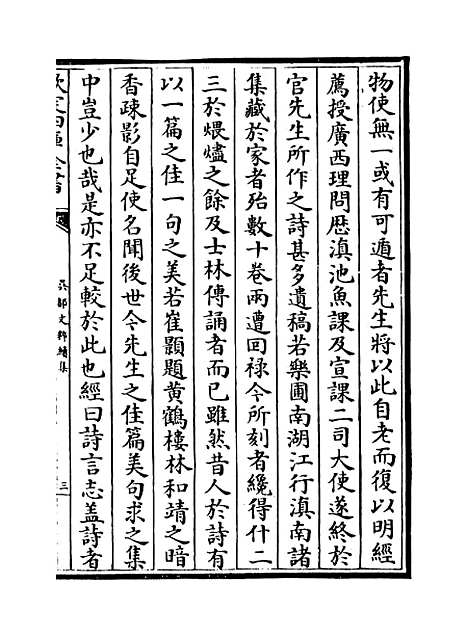 物使無一或有可遁者先生將以此自老而復以明經
薦授廣西理問歴滇池魚課及宣課二司大使遂終於
官先生所作之詩甚多遺稿若樂圃南湖江行滇南諸
集藏於家者殆數十卷兩遭回禄今所刻者纔得什二
三於煨燼之餘及士林傳誦者而已雖然昔人於詩有
以一篇之佳一句之美若崔顥題黄鶴樓林和靖之暗
香疎影自足使名聞後世今先生之佳篇美句求之集
中豈少也哉是亦不足較於此也經曰詩言志盖詩者
欽定四庫全書
吳都文粹續集
三